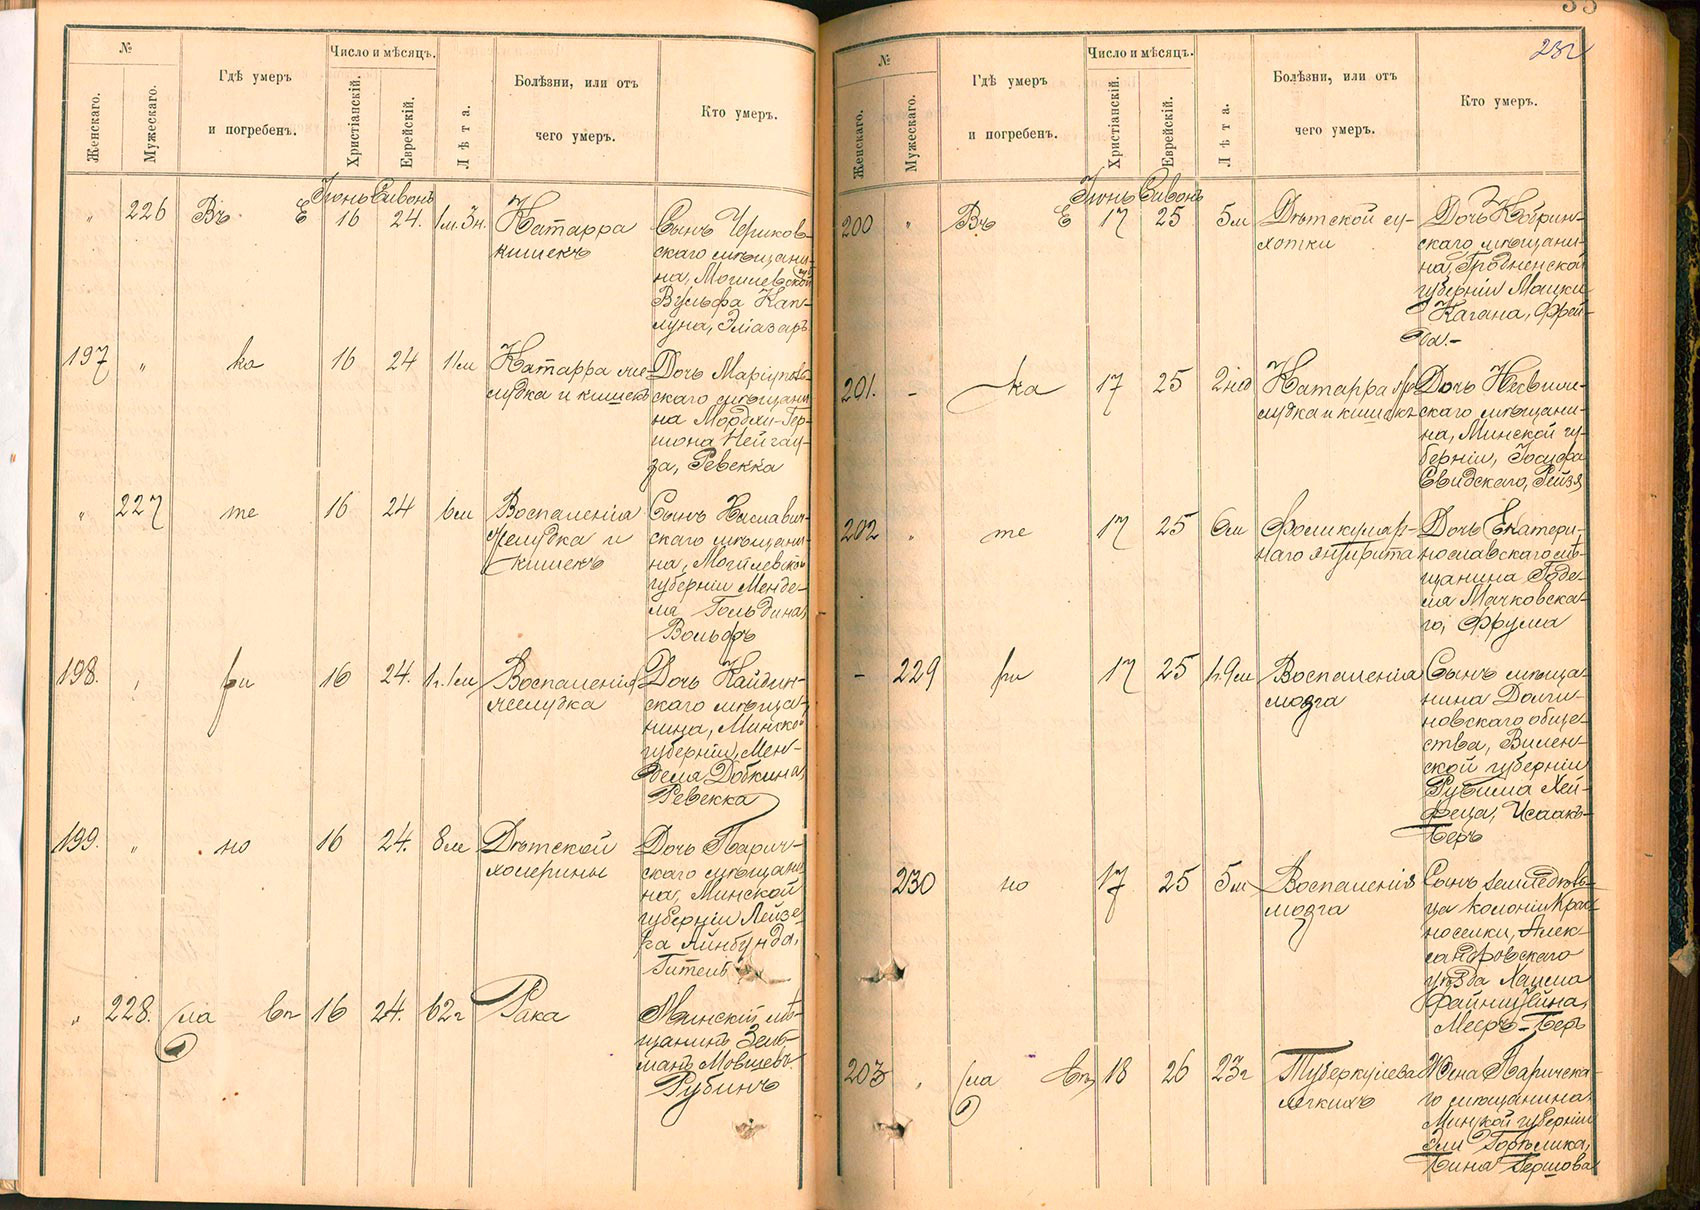 №
Женскаго.
Мужескаго.
Гдѣ умеръ
и погребенъ.
Число и мѣсяцъ.
Христіанскій.
Еврейскій.
Лѣта.
Болѣзни, или отъ
чего умеръ.
Кто умеръ.
Іюнь Сивонъ
„ 226 Въ Е 16 24. 1м. 3н. Катарра
кишекъ
Сынъ Чериков-
скаго мѣщани-
на, Могилевской
Вульфа Кап-
луна, Эліазаръ
197 „ ка 16 24 11м Катарра же-
лудка и кишекъ
Дочь Маріупол-
скаго мѣщани-
на Мордхи-Гер-
шона Нейгау-
за, Ревекка
„ 227 те 16 24 6м Воспаленія
желудка и
кишекъ
Сынъ Хиславич-
скаго мѣщани-
на, Могилевской
губерніи Менде-
ля Гольдина,
Вольфъ
198. „ ри 16 24. 1г. 1м Воспаленія
желудка
Дочь Кайдан-
скаго мѣща-
нина, Минской
губерніи, Мен-
деля Добкина,
Ревекка
199. „ но 16 24. 8м Дѣтской
холерины
Дочь Парич-
скаго мѣщани-
на, Минской
губерніи Лейзе-
ра Айнбунда,
Гитель
„ 228. сла въ 16 24. 62г Рака
Минскій мѣ-
щанинъ Зель-
манъ Мовшевъ
Рубинъ
35
232
№
Женскаго.
Мужескаго.
Гдѣ умеръ
и погребенъ.
Число и мѣсяцъ.
Христіанскій.
Еврейскій.
Лѣта.
Болѣзни, или отъ
чего умеръ.
Кто умеръ.
Іюнь Сивонъ
200 „ Въ Е 17 25 5м Дѣтской су-
хотки
Дочь Кобрин-
скаго мѣщани-
на, Гродненской
губерніи Мошки
Кагана, Фрей-
да.-
201. - ка 17 25 2нед Катарра же-
лудка и кишекъ
Дочь Несвиж-
скаго мѣщани-
на, Минской гу-
берніи, Іосифа
Свидскаго, Рейзя
202 „ те 17 25 6м Фолликуляр-
наго энтерита
Дочь Екатери-
нославскаго мѣ-
щанина Годе-
ля Мачковска-
го, Фрума
- 229 ри 17 25 1г. 9м Воспаленія
мозга
Сынъ мѣща-
нина Долги-
новскаго обще-
ства, Вилен-
ской губерніи
Рубина Хей-
феца, Исаакъ-
Беръ
230 но 17 25 5м Воспаленія
мозга
Сынъ земледѣль-
ца колоніи Крас-
носелки, Алек-
сандровскаго
уѣзда Хаима
Файншвейна,
Мееръ-Беръ
203 „ сла въ 18 26 23г Туберкулеза
легкихъ
Жена Паричска-
го мѣщанина,
Минской губерніи
Эли Горелика,
Бина Гершова